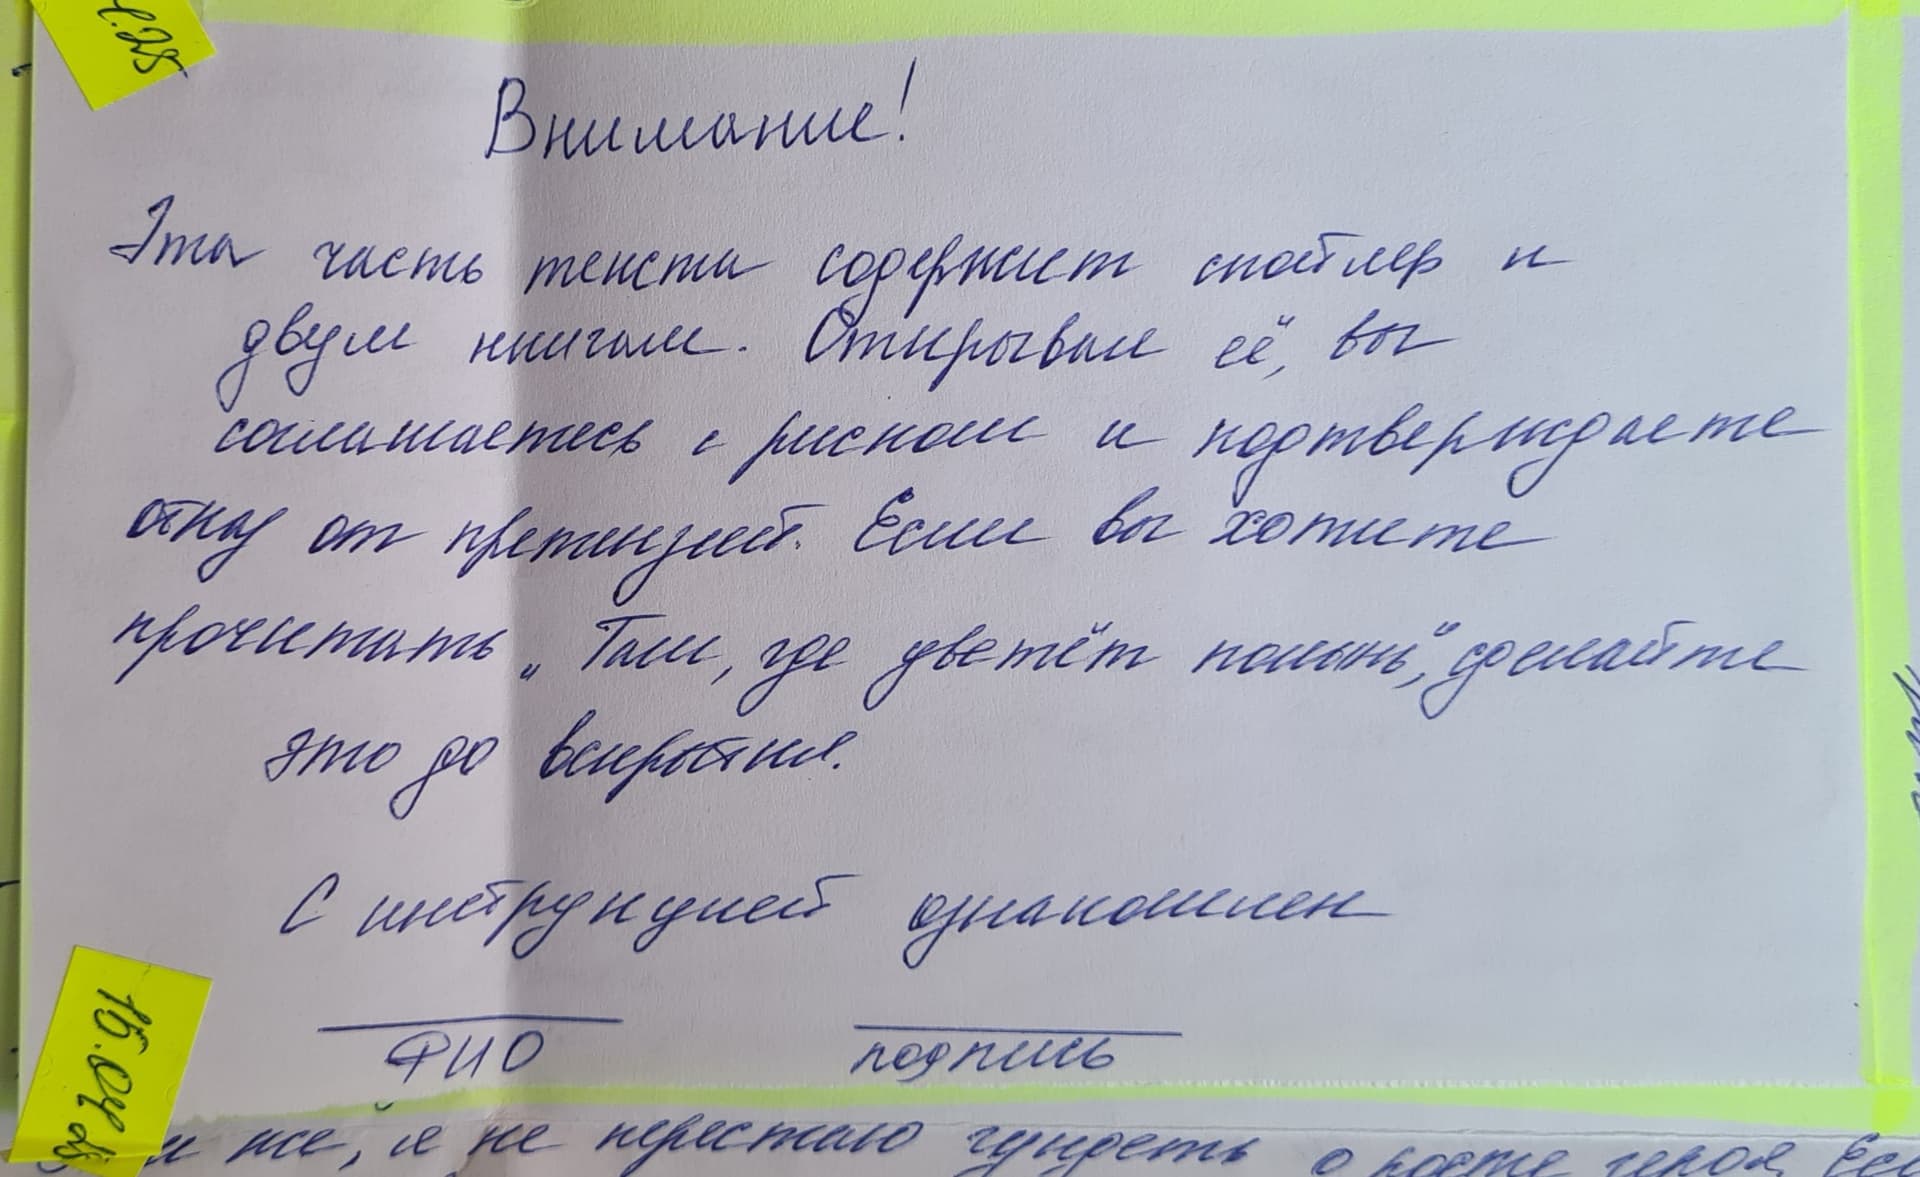 .25
Внимание!
Эта часть текста содержит спойлер к
двум книгам. Открывая её, вы
соглашаетесь с риском и подтверждаете
отказ от претензий. Если вы хотите
прочитать „Там, где цветёт полынь", сделайте
это до вскрытия.
С инструкцией ознакомлен
ФИО подпись
15.04.25
же, я не перестаю гундеть о росте героя.